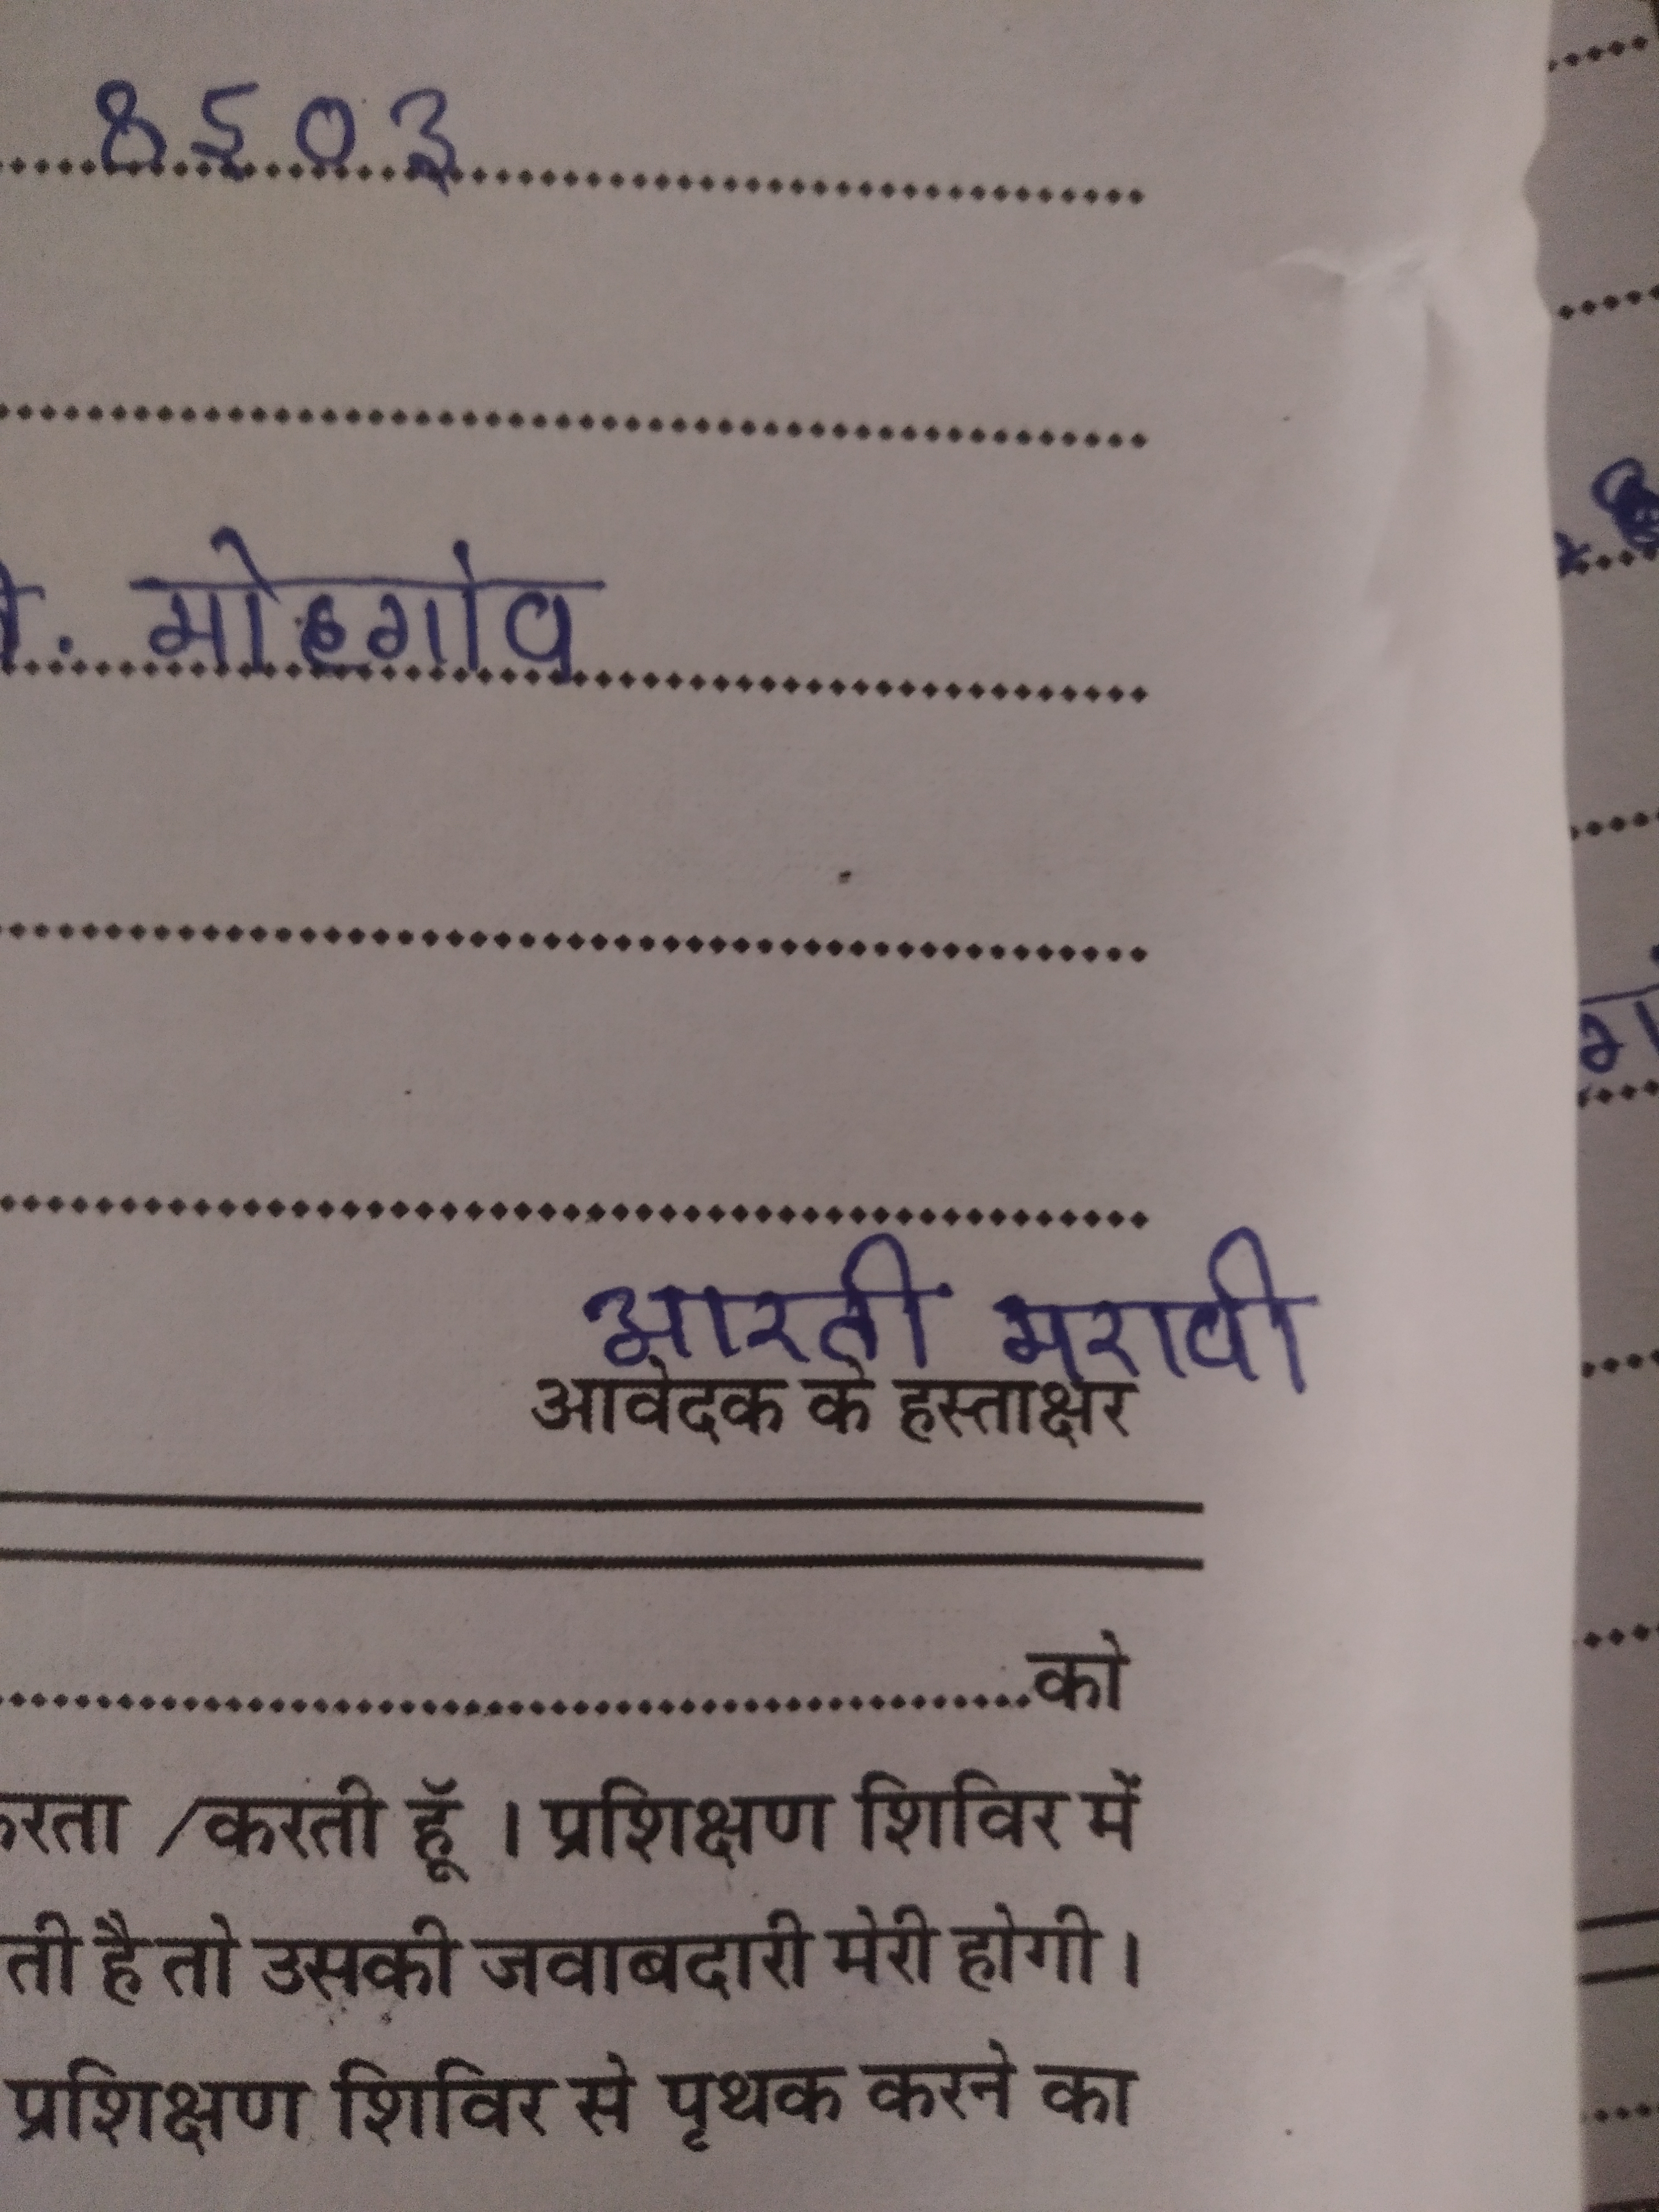 8503
मोहगांव
आरती मरावी
आवेदक के हस्ताक्षर
को
करता /करती हूॅ । प्रशिक्षण शिविर में
ती है तो उसकी जवाबदारी मेरी होगी ।
प्रशिक्षण शिविर से पृथक करने का